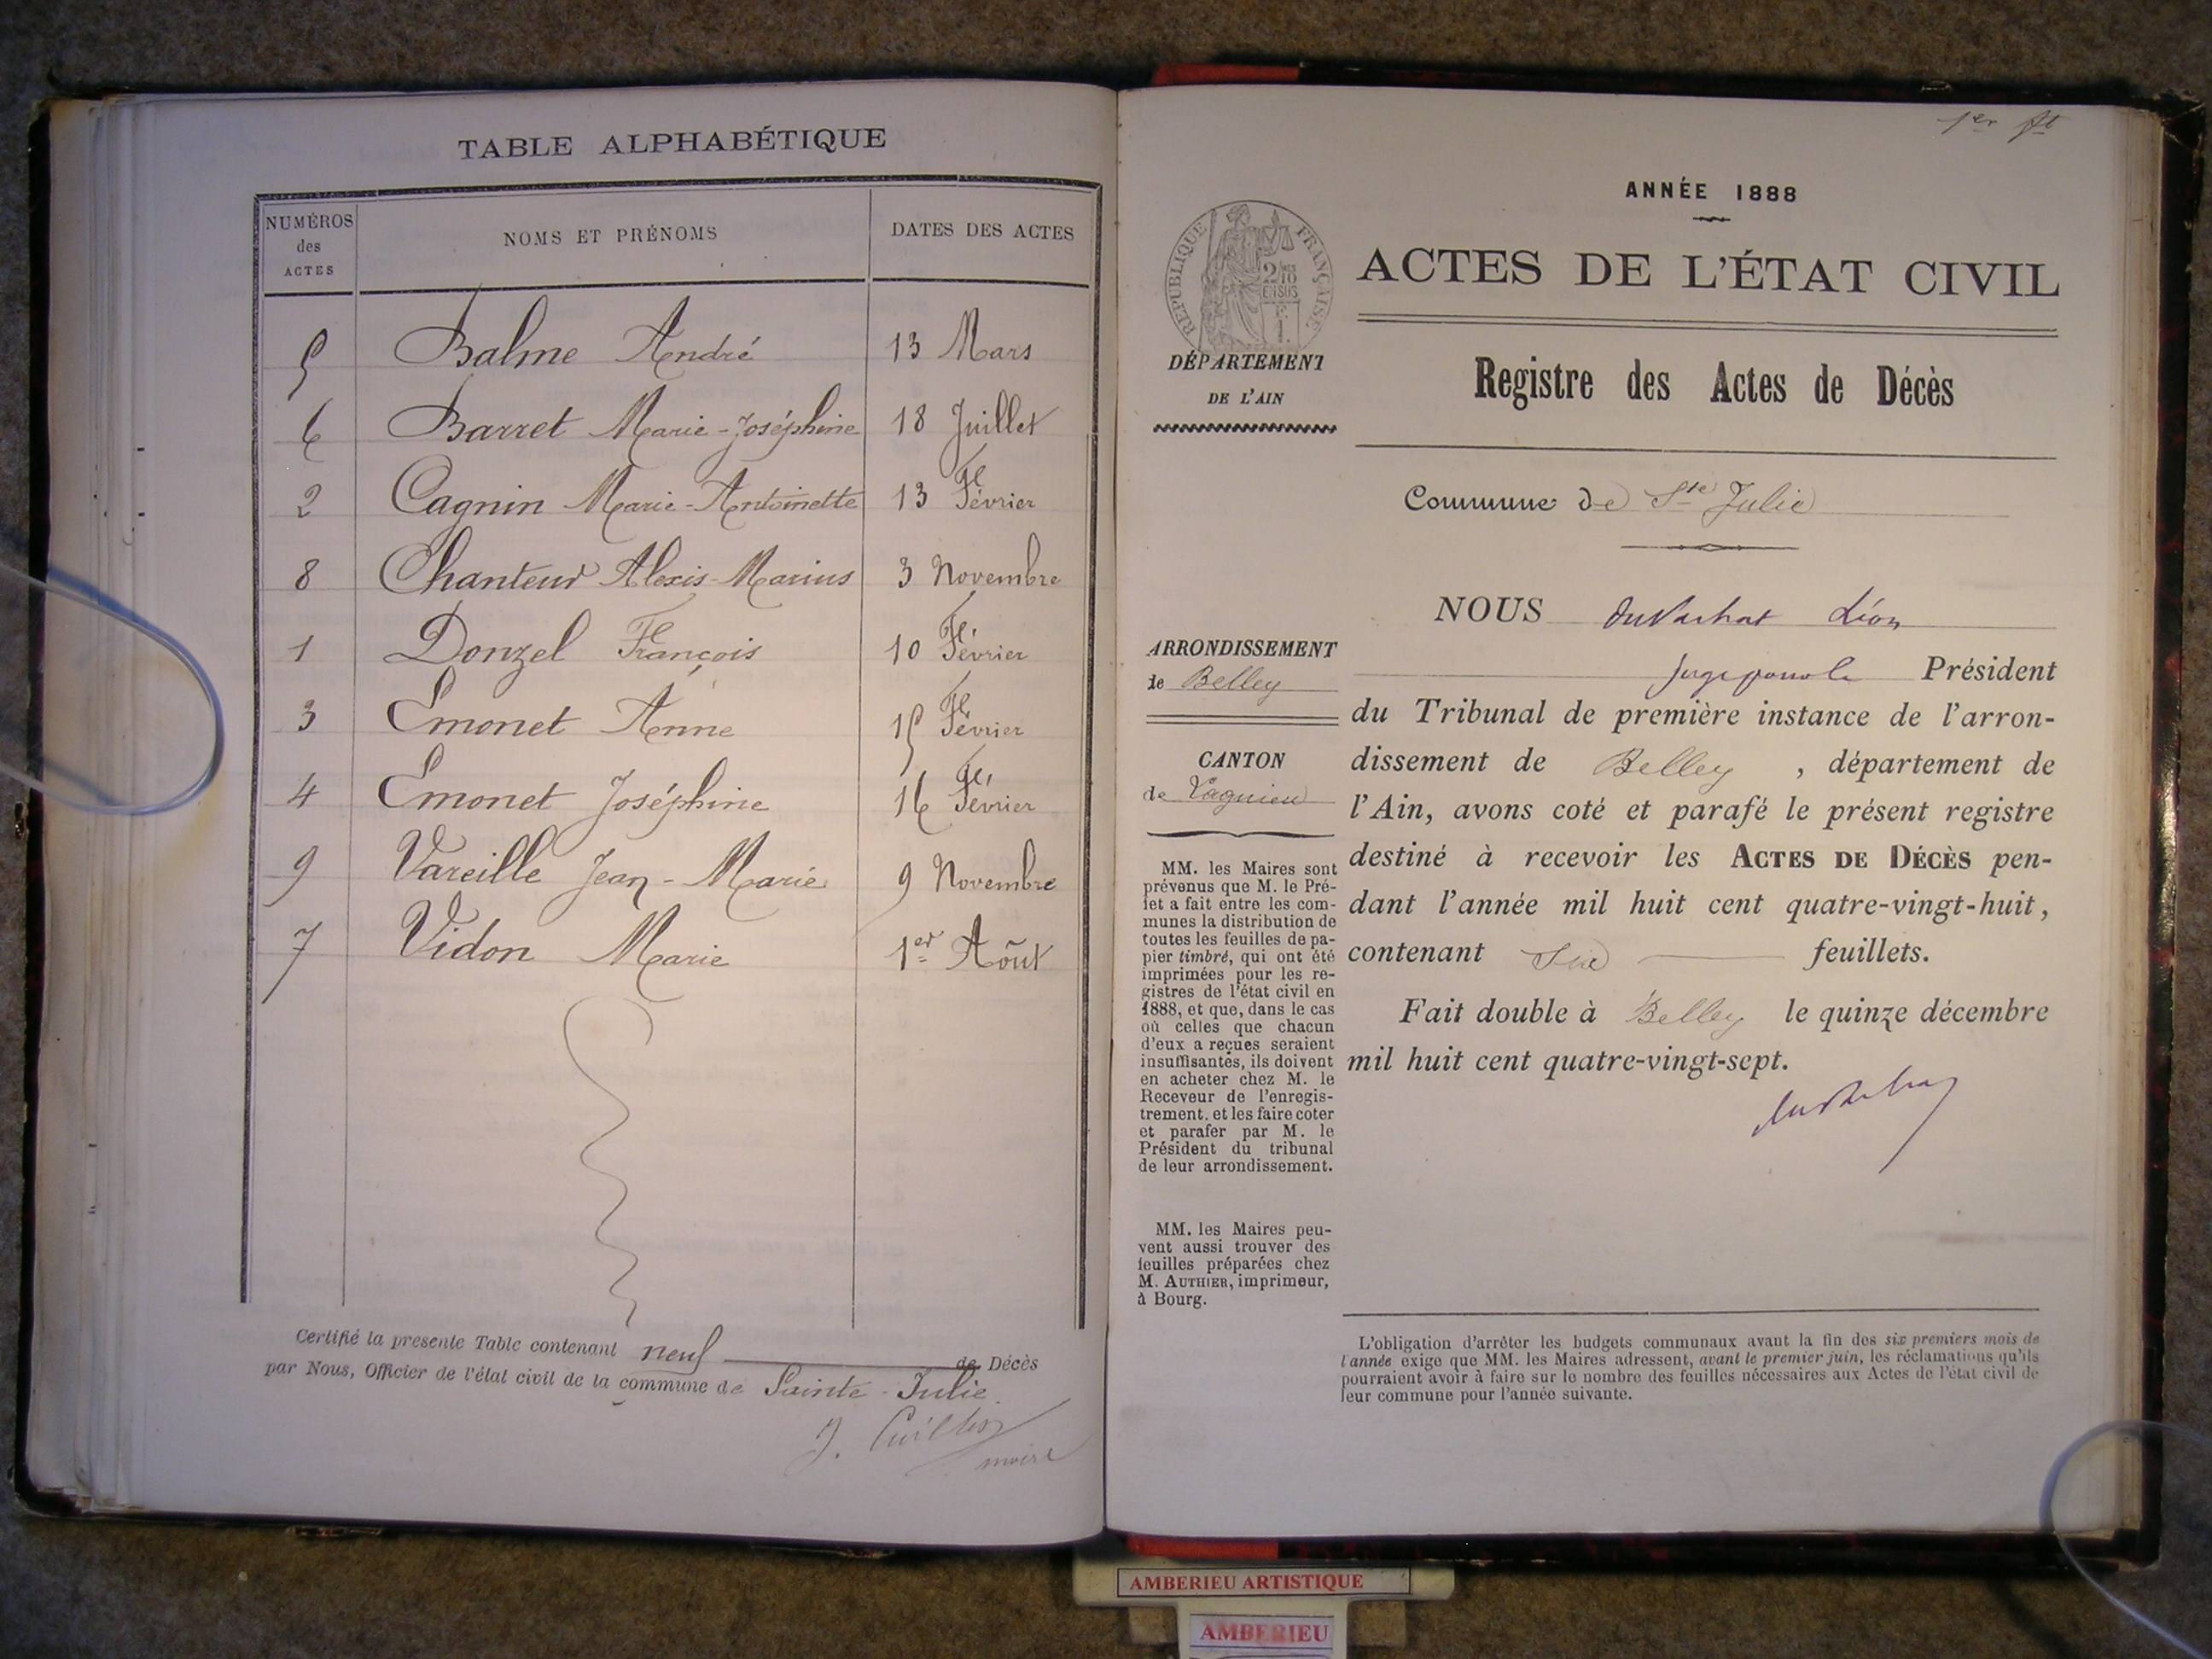 TABLE ALPHABÉTIQUE
NUMÉROS des ACTES NOMS ET PRÉNOMS DATES DES ACTES
5 Balme André 13 Mars
6 Barret Marie-Joséphine 18 Juillet
2 Cagnin Marie-Antoinette 13 Février
8 Chanteur Alexis-Marius 3 Novembre
1 Donzel François 10 Février
3 Emonet Anne 15 Février
4 Emonet Joséphine 16 Février
9 Vareille Jean-Marie 9 Novembre
7 Vidon Marie 1er Août
Certifié la présente Table contenant neuf de Décès
par Nous, Officier de l'état civil de la commune de Sainte-Julie.
maire
1er ft
ANNÉE 1888
RÉPUBLIQUE FRANÇAISE
2/10 EN SUS
F. 1.
ACTES DE L'ÉTAT CIVIL
DÉPARTEMENT
DE L'AIN
Registre des Actes de Décès
Commune de Ste Julie
ARRONDISSEMENT
de Belley
CANTON
de Lagnieu
MM. les Maires sont
prévenus que M. le Pré-
fet a fait entre les com-
munes la distribution de
toutes les feuilles de pa-
pier timbré, qui ont été
imprimées pour les re-
gistres de l'état civil en
1888, et que, dans le cas
où celles que chacun
d'eux a reçues seraient
insuffisantes, ils doivent
en acheter chez M. le
Receveur de l'enregis-
trement, et les faire coter
et parafer par M. le
Président du tribunal
de leur arrondissement.
MM. les Maires peu-
vent aussi trouver des
feuilles préparées chez
M. AUTHIER, imprimeur,
à Bourg.
NOUS Léon
Président
du Tribunal de première instance de l'arron-
dissement de Belley , département de
l'Ain, avons coté et parafé le présent registre
destiné à recevoir les ACTES DE DÉCÈS pen-
dant l'année mil huit cent quatre-vingt-huit,
contenant Six feuillets.
Fait double à Belley le quinze décembre
mil huit cent quatre-vingt-sept.
L'obligation d'arrêter les budgets communaux avant la fin des six premiers mois de
l'année exige que MM. les Maires adressent, avant le premier juin, les réclamations qu'ils
pourraient avoir à faire sur le nombre des feuilles nécessaires aux Actes de l'état civil de
leur commune pour l'année suivante.
AMBERIEU ARTISTIQUE
AMBERIEU